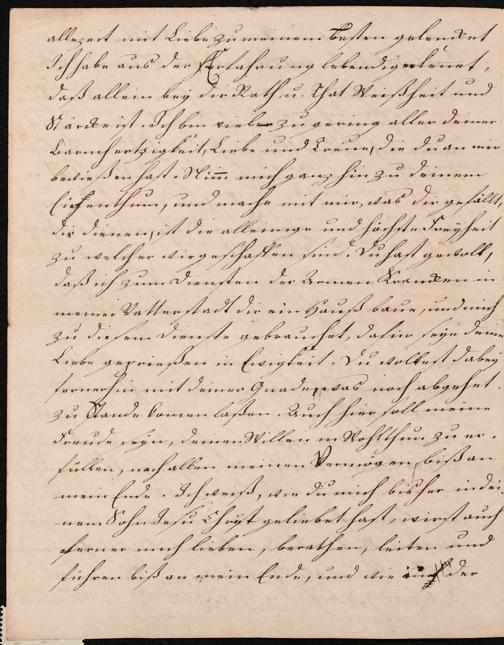 allezeit mit Liebe zu meinem besten gelencket
Ich habe aus der Erfahrung lebendig erkenet,
daß allein bey dir Rath u. That Weißheit und
Stärcke ist. Ich bin viel zu gering aller deiner
Barmhertzigkeit, Liebe und Treue, die du an mir
bewießen hast. Nim mich ganz hin zu deinem
Eigenthum, und mache mit mir, was dir gefällt,
dir dienen, ist die alleinige und höchste Freyheit
zu welcher wir geschaffen sind. Du hast gewolt,
daß ich zum Diensten der Armen Krancken in
meiner Vatterstadt dir ein Hauß baue, und mich
zu diesem Dienste gebrauchet, dafür seye deine
Liebe geprießen in Ewigkeit. Du wollest dabey
fernerhin mit deiner Gnade, was noch abgehet
zu Stande komen laßen. Auch hier soll meine
Freude seyn, deinen Willen im Wohlthun zu er-
füllen, nach allen meinen Vermögen, biß an
mein Ende. Ich weiß, wie du mich bisher in dei
nem Sohn Jesu Christ geliebet hast, wirst auch
ferner mich lieben, berathen, leiten und
führen biß an mein Ende, und wie der